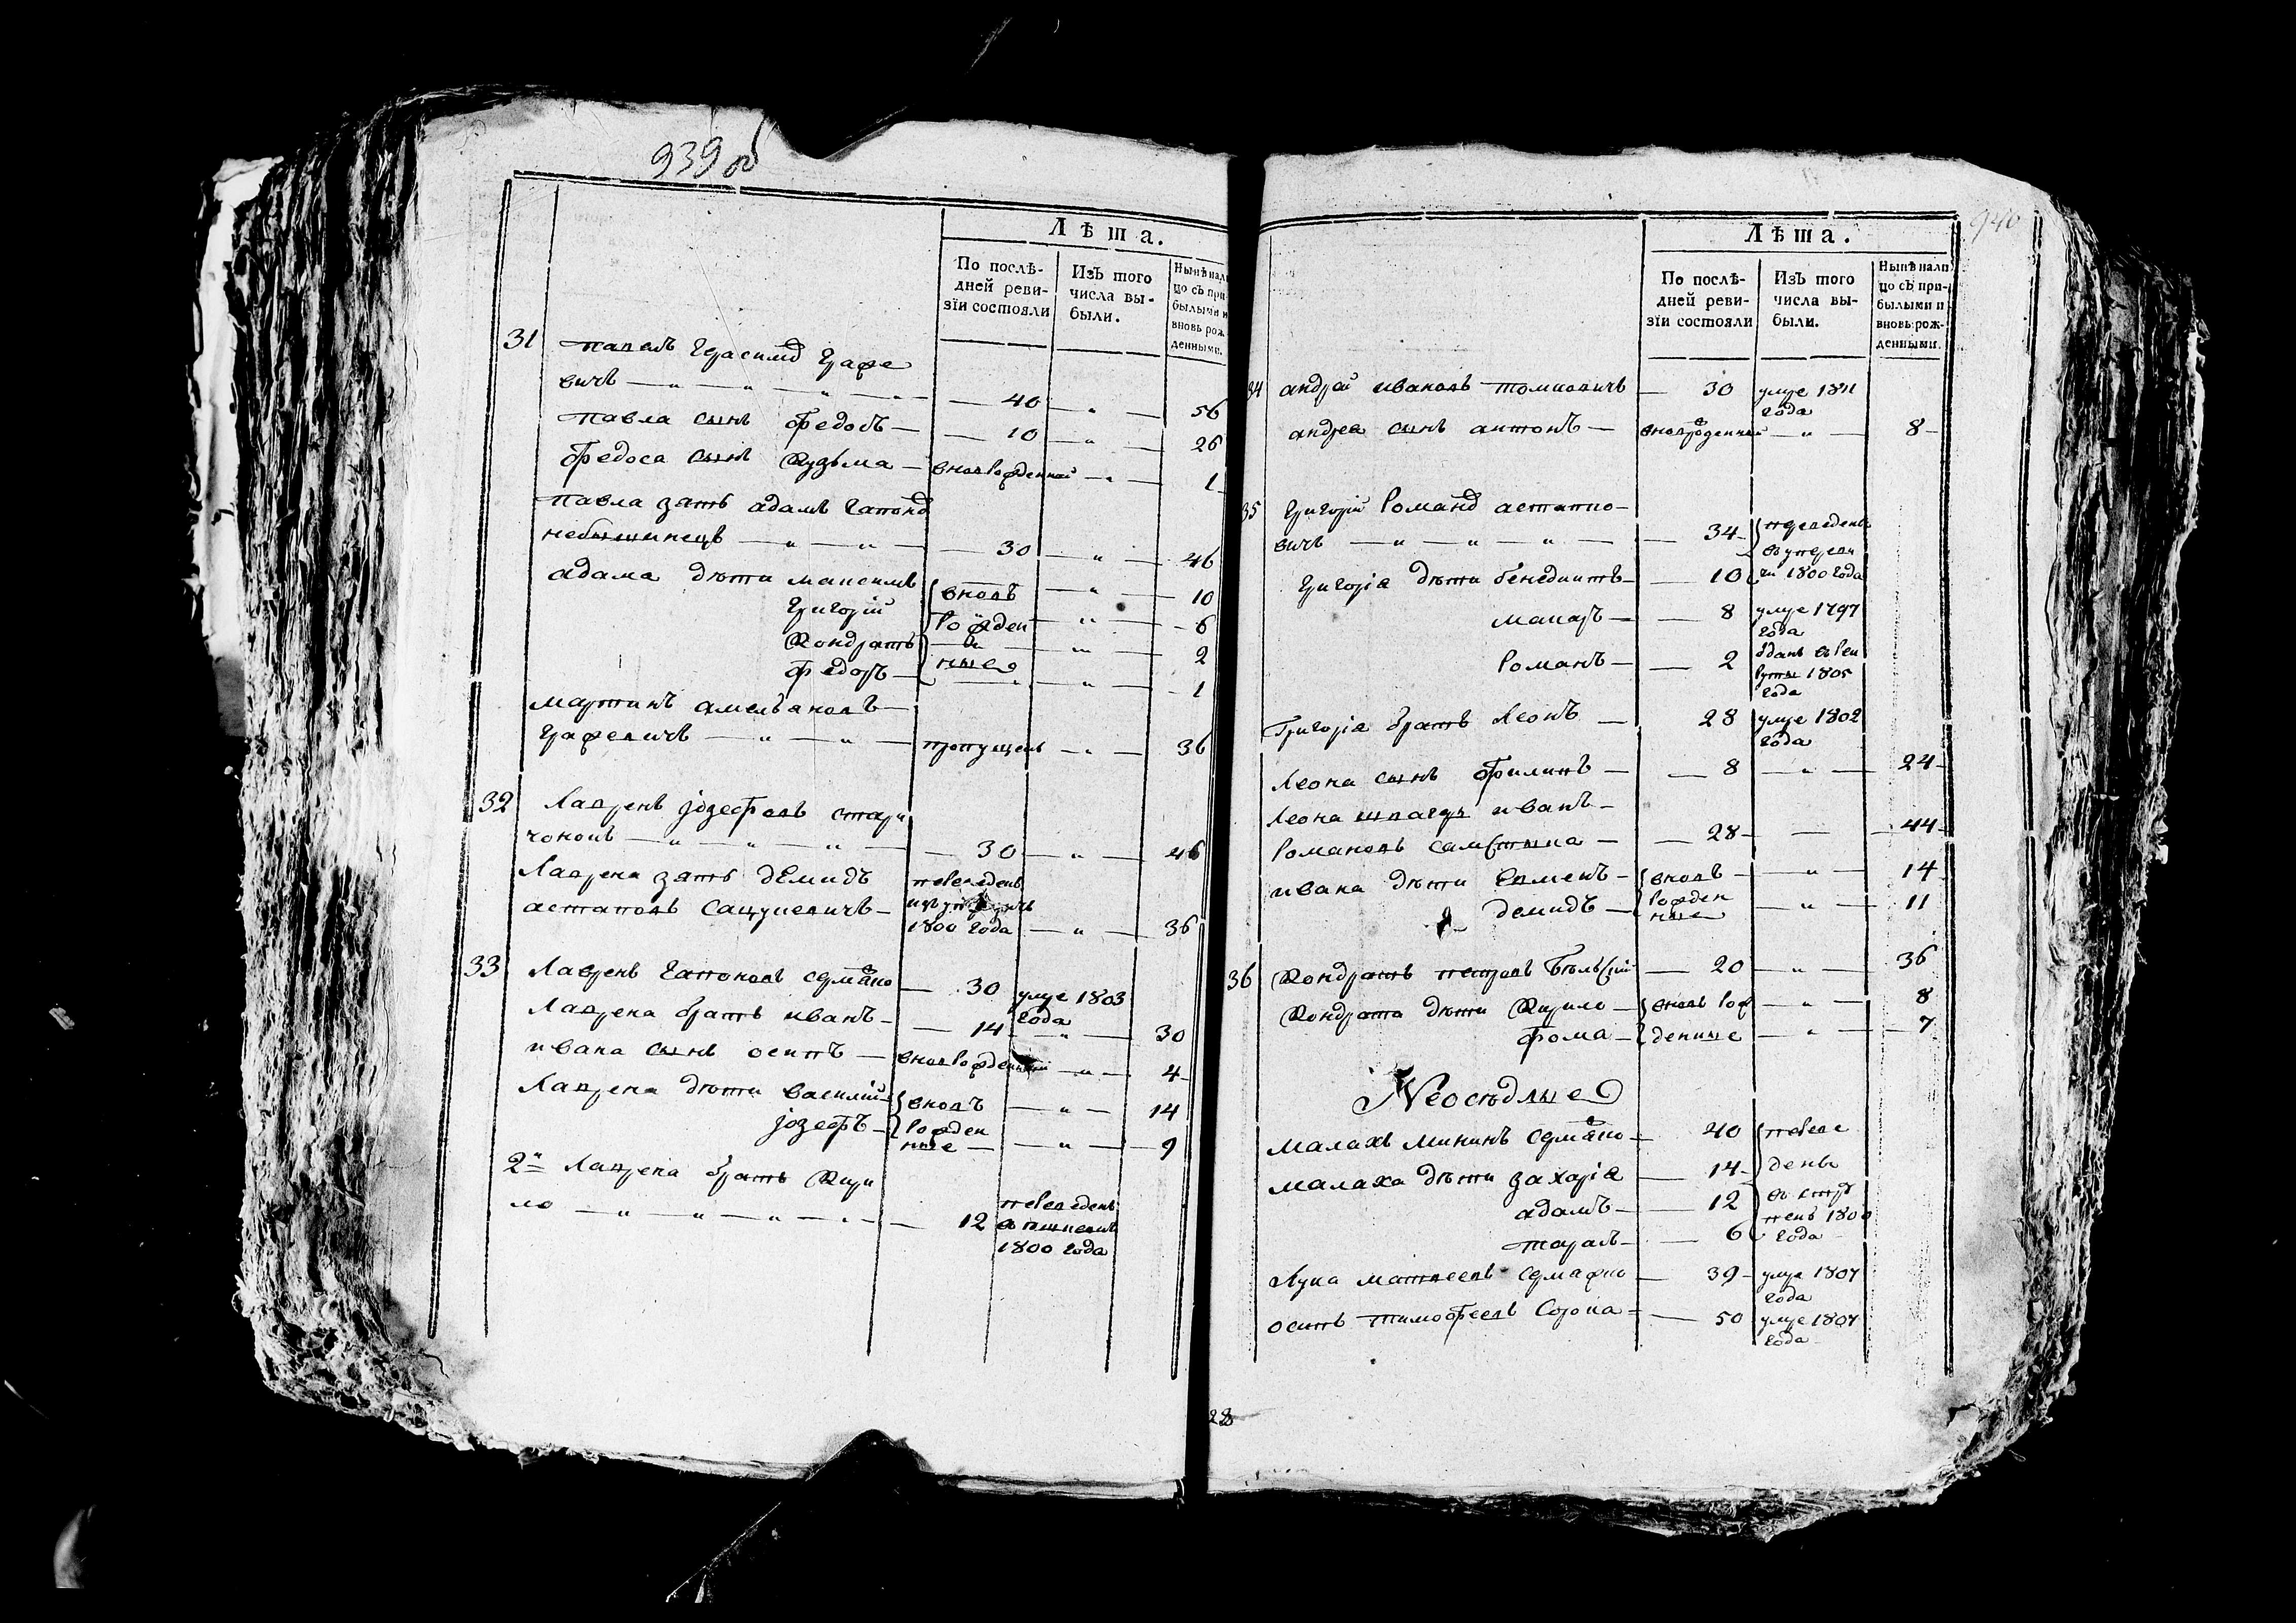 939 об
Лѣта.
По послѣ-
дней реви-
зіи состояли
Изъ того
числа вы-
были.
Нынѣ нали
цо съ при
былыми и
вновь рож.
денными.
31 павелъ Герасимо Ерафе
вичъ — 40 — 56
павла сынъ федосъ — 10 — 26
федоса сынъ Кузьма — вновь рожденной — 1
павла зять адамъ Гапоно
небышинецъ — 30 — 46
адама дѣти максимъ вновь — 10
Григорій рожден — 6
Кондратъ — 2
федоръ ные — 1
мартинъ амельяновъ
Ерафевичъ — пропущенъ — 36
32 Лавренъ јозефовъ стари
чонокъ — 30 — 46
Лаврена зять демидъ переведенъ
астаповъ Сацукевичъ —
1800 года — 36
33 Лавренъ Гапоновъ сермяжко — 30 умре 1803
года
Лаврена братъ иванъ — 14 — 30
ивана сынъ осипъ — вновь рожденный — 4
Лаврена дѣти василій вновь — 14
јозефъ рожден
ные — 9
2й Лаврена братъ Кири
ло — 12 переведенъ
1800 года
940
Лѣта.
По послѣ-
дней реви-
зіи состояли
Изъ того
числа вы-
были.
Нынѣ нали
цо съ при-
былыми и
вновь рож-
денными.
34 андрей ивановъ томковичъ — 30 умре 1811
года
андрея сынъ антонъ — вновьрожденный — 8
35 Григорій Романо астапко-
вичъ — 34 переведены
Григорія дѣти бенедиктъ — 10 1800 года
макаръ — 8 умре 1797
года
романъ — 2 зданъ в рек
руты 1805
года
Григорія братъ Леонъ — 28 умре 1802
года
Леона сынъ филипъ — 8 — 24
Леона швагеръ иванъ
Романовъ — 28 — 44
ивана дѣти Евменъ вновь — 14
демидъ рожден
ные — 11
36 Кондратъ петровъ Бѣльскій — 20 — 36
Кондрата дѣти Кирило — вновь рож — 8
фома — денные — 7
Неосѣдлые
малахъ мининъ сермяжко — 40 переве
малаха дѣти захарія — 14 дены
адамъ — 12
1800
тарасъ — 6 года
Лука матвеевъ сермяжко — 39 умре 1807
года
осипъ тимофеевъ Сорока — 50 умре 1807
года
28